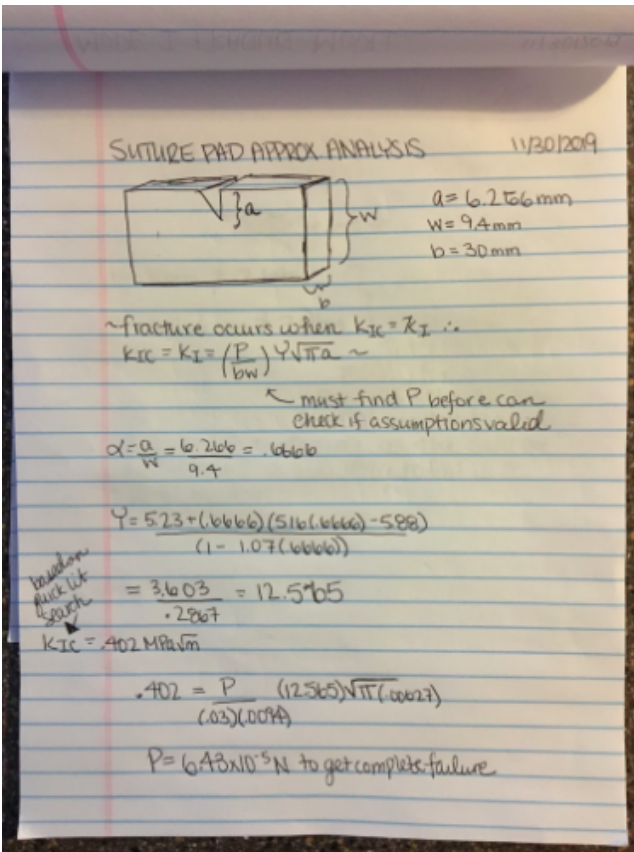 SUTURE PAD APPROX ANALYSIS 11/30/2019
a
w
b
a= 6.266mm
w= 9.4mm
b= 30mm
~fracture occurs when KIC = KI ∴
KIC = KI = (P/bw) Y√πa ~
must find P before can
check if assumptions valid
α = a/w = 6.266/9.4 = .6666
Y = 5.23+(.6666)(5.16(.6666)-5.88)/(1-1.07(.6666))
= 3.603/.2867 = 12.565
based on
quick lit
search
KIC = .402 MPa√m
.402 = P/(.03)(.0094) (12.565)√π(.00627)
P= 6.43x10⁻⁵N to get complete failure